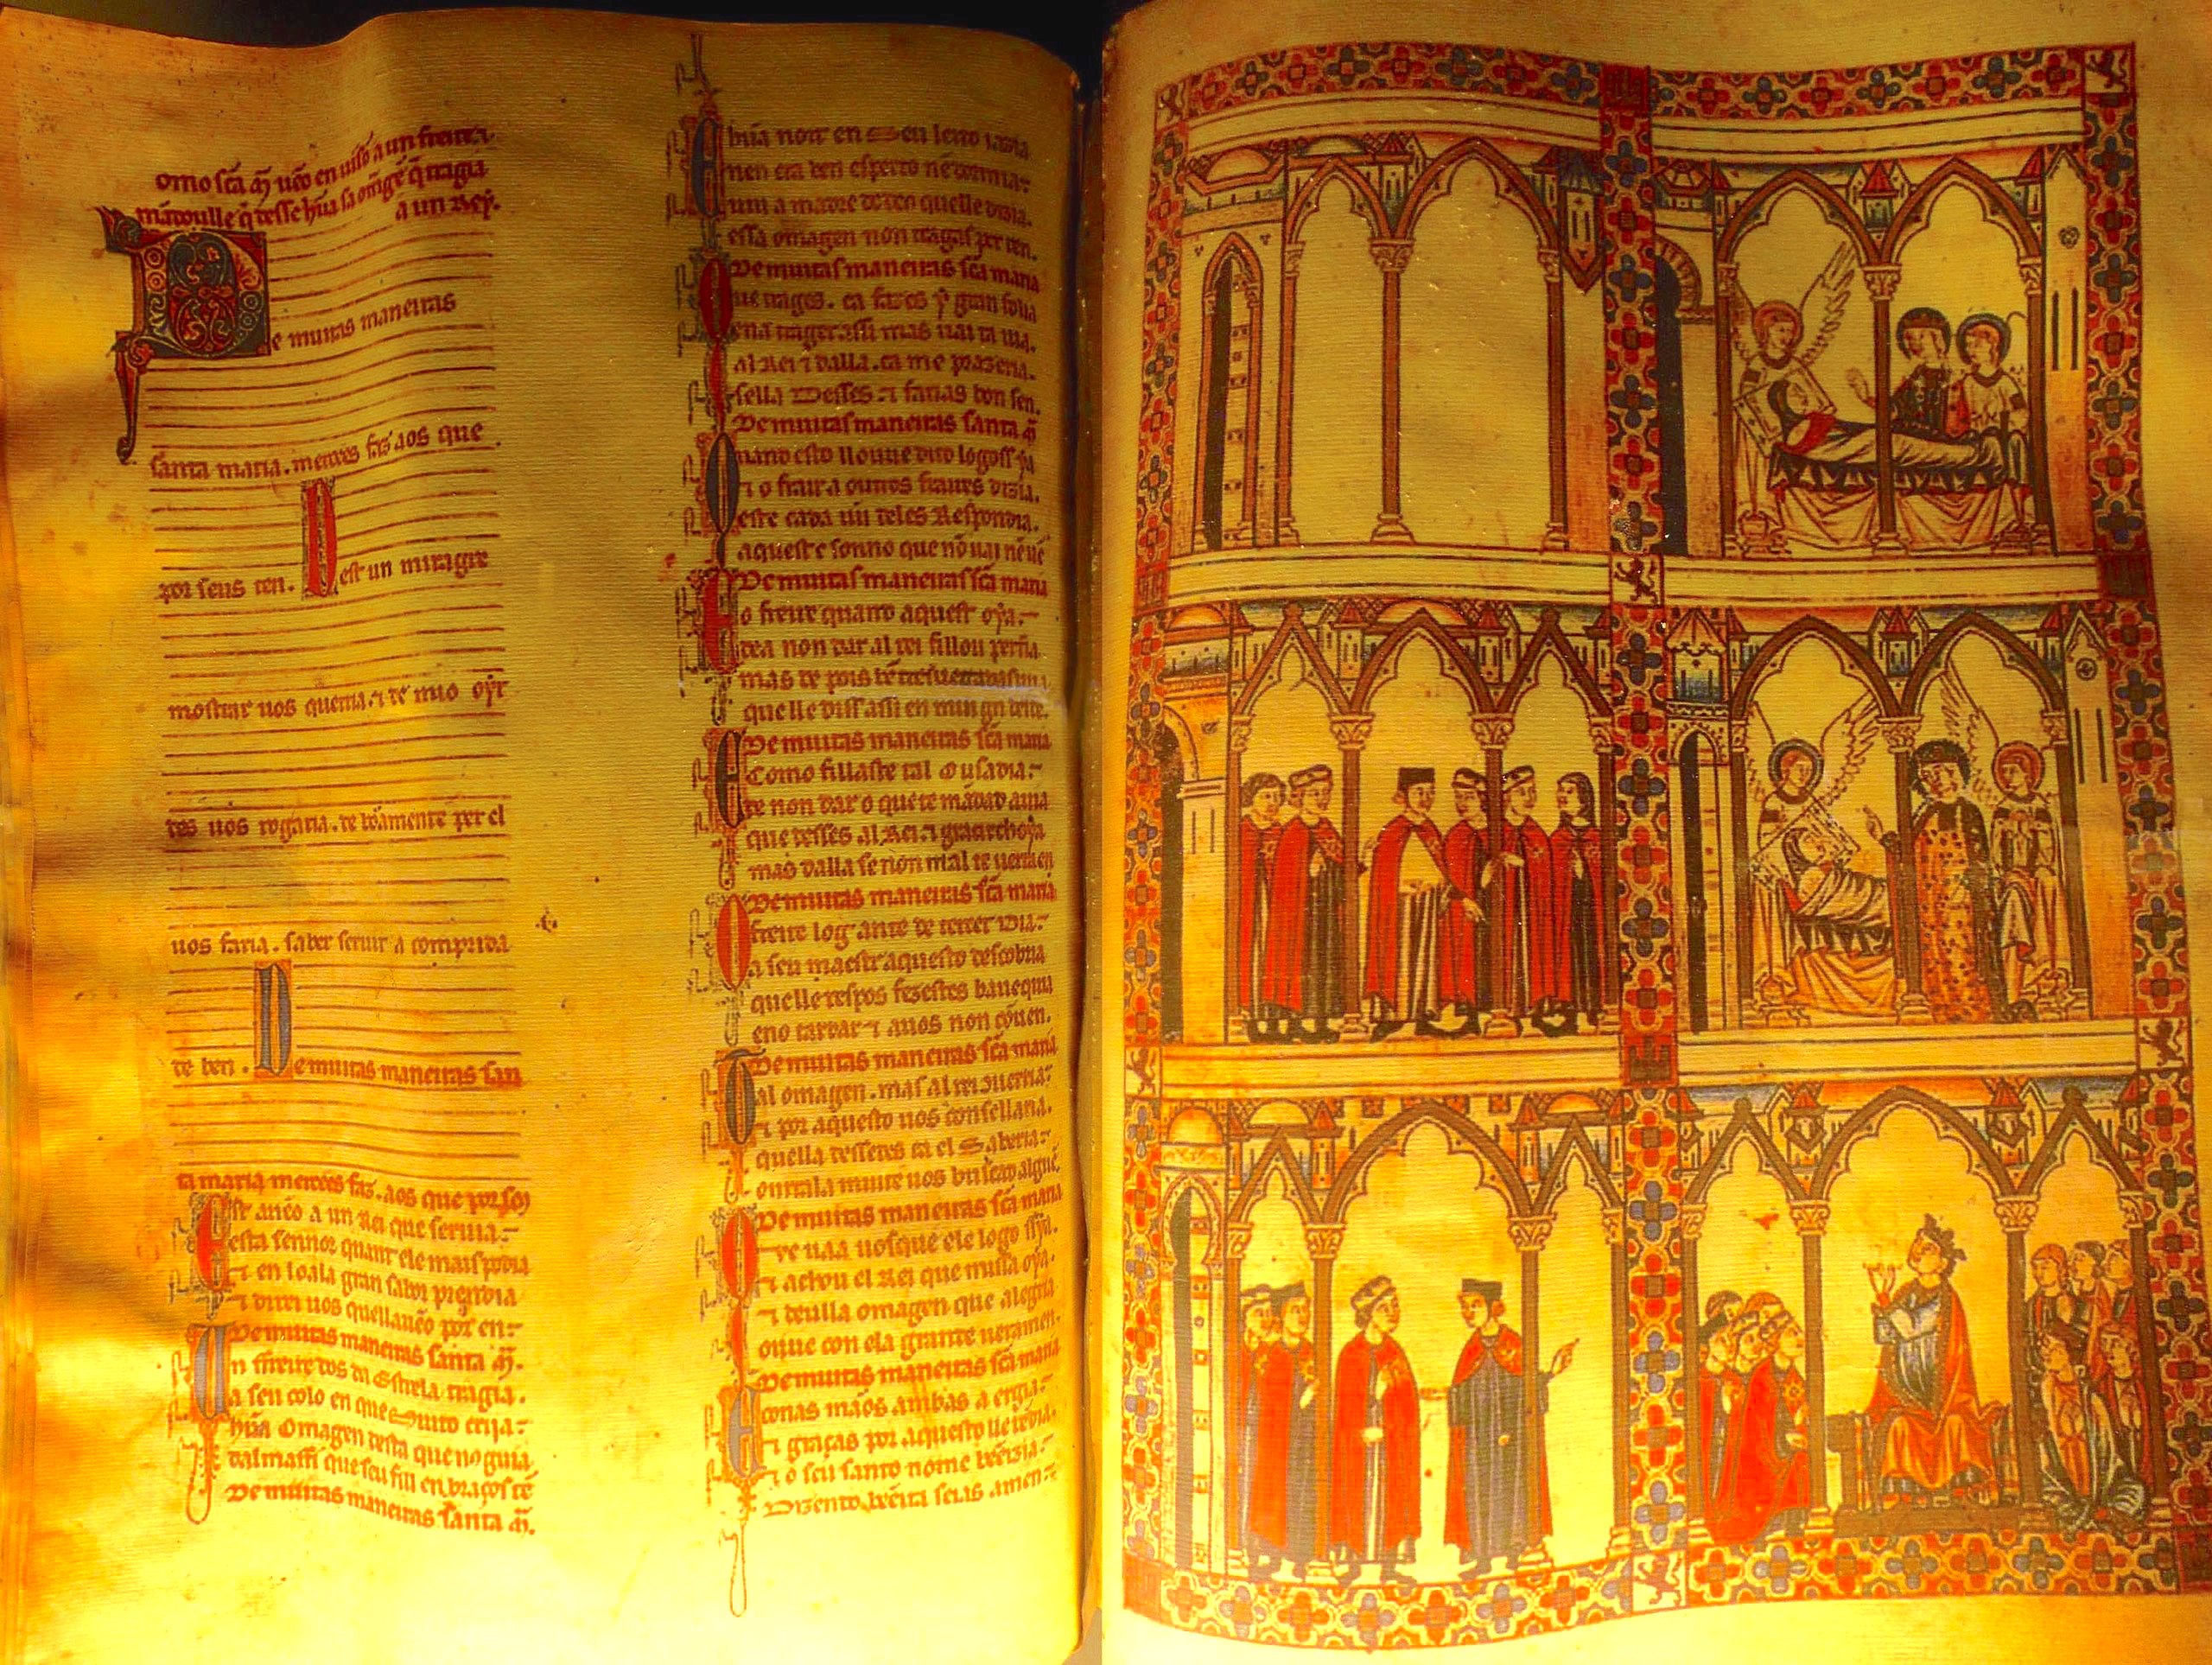 omo scā m̄ ueo en uisō a un freire ⁊
mādoulle q̄ desse hūa sa omagē q̄ tragia
a un Rey.
De muitas maneiras
santa maria. merces faz aos que
por seus ten. Dest un miragre
mostrar uos querria. ⁊ de mio oyr
uos rogaria. de
per el
uos faria. saber seruir a comprida
de ben. De muitas maneiras san
ta maria merces faz. aos que por so
Est aueo a un Rei que seruia
esta sennor quant ele mais podia
⁊ en loala gran sabor prendia
⁊ direi uos quell aueo por en
De muitas maneiras santa m̄.
Un freire dos da Estrela tragia.
a seu colo en que muito criia
hūa omagen desta que nos guia
dal massi que seu fill en braços tē
De muitas maneiras santa m̄.
E hūa noit en seu leito iazia
nen era ben esperto nē dormia
uiu a madre de deus quelle dizia.
essa omagen non tragas per ren.
De muitas maneiras scā maria
Que trages. ca fazes y gran folia
ena trager assi mas uai ta uia.
al Rei ⁊ dalla. ca me prazeria.
sella desses. ⁊ farias bon sen.
De muitas maneiras santa m̄
Quand esto llouue dito logo
⁊ o frair a outros fraires dizia.
este cada un deles Respondia.
aquest e sonno que nō uai nē uē
De muitas maneiras scā maria
E o freire quand aquest oya.
dea non dar al rei fillou perfia
mas
que lle diss assi en mui gn desden.
De muitas maneiras scā maria
Como fillaste tal ousadia
de non dar o que te mādad auia
que desses al Rei
mas dalla se non mal te uerra en
De muitas maneiras scā maria
O freire log ante de tercer dia
a seu maestr aquesto descobria
quelle respos fezestes bauequia
eno tardar ⁊ a uos non conuen.
De muitas maneiras scā maria
Tal omagen. mas al rei
⁊ por aquesto uos consellaria.
quella dessedes ca el saberia
ourala muit e uos buscar algue.
De muitas maneiras scā maria
O
uosque ele logo ssya.
⁊ achou el Rei que missa oya.
⁊ deulla omagen que alegria
ouue con ela grande
De muitas maneiras scā maria
E conas māos ambas a ergia
⁊ graças por aquesto lle rendia.
⁊ o seu santo nome beeizia
Dizendo beeita seias amen